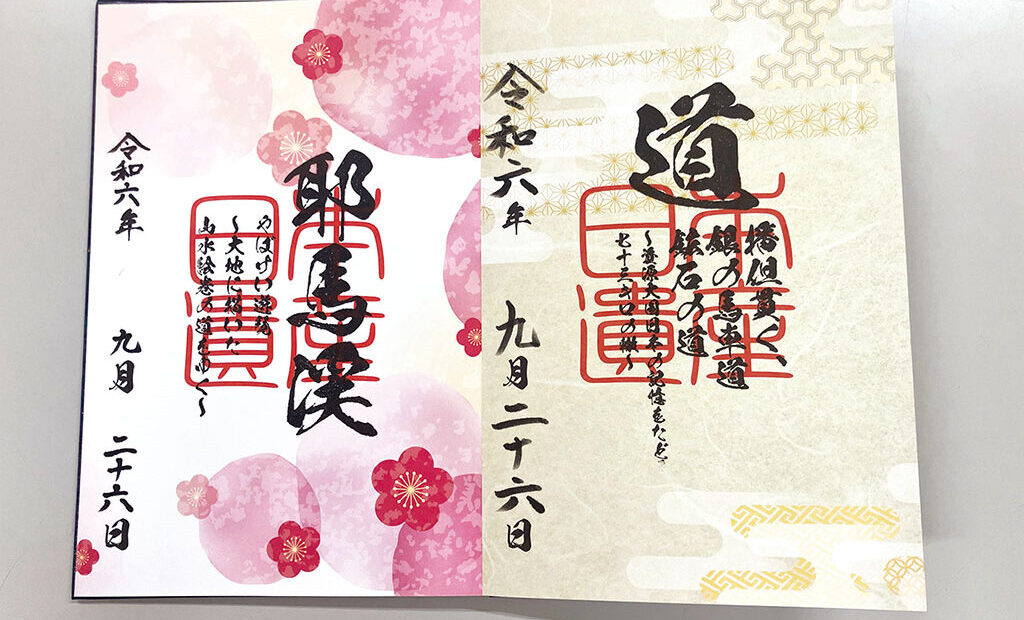 道
播但貫く、
銀の馬車道
鉱石の道
〜資源大国日本の記憶をたどる
七十三キロの轍〜
日本
遺産
令和六年 九月 二十六日
耶馬渓
やばけい遊覧
〜大地に描いた
山水絵巻の道をゆく〜
日本
遺産
令和六年 九月 二十六日